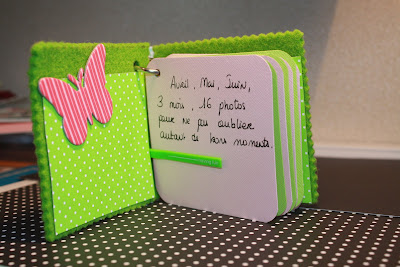 Avril, Mai, Juin,
3 mois, 16 photos
pour ne pas oublier
autant de bons moments.